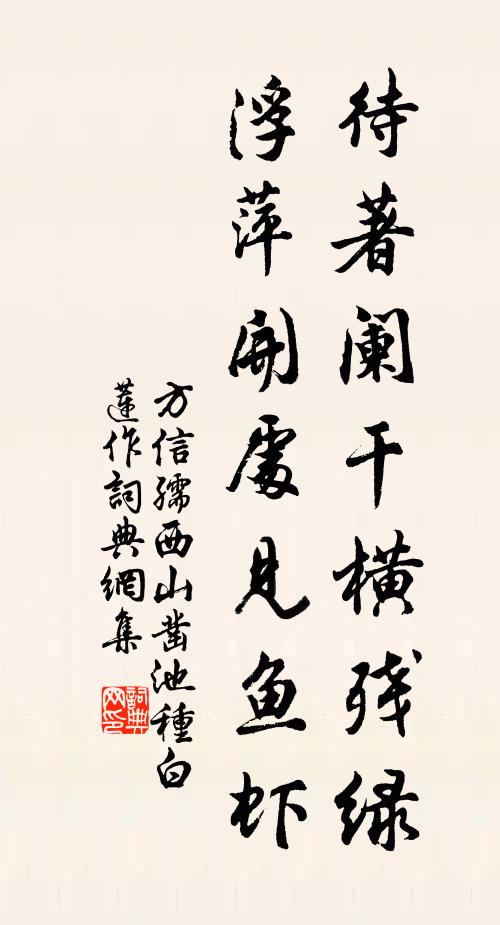 待著阑干横残绿
浮萍開處见鱼虾
方信孺西山凿池種白
蓮作詞典網集
詞典网印